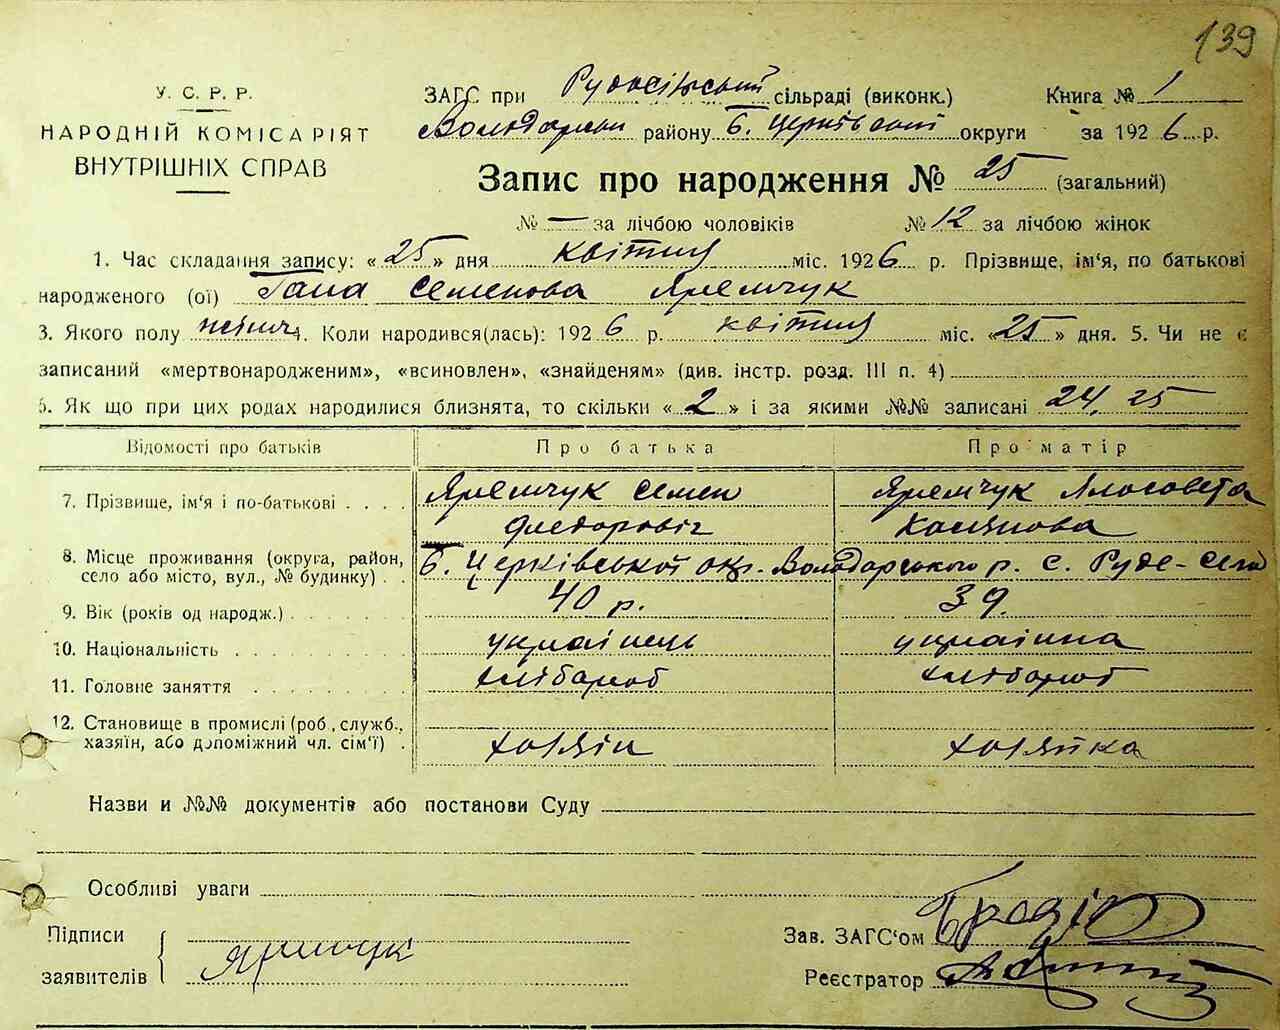 139
У. С. Р. Р.
НАРОДНІЙ КОМІСАРІЯТ
ВНУТРІШНІХ СПРАВ
ЗАГС при Рудосільський сільраді (виконк.) Книга № 1
Володарськ району Б. Церківської округи за 1926 р.
Запис про народження № 25 (загальний)
№ — за лічбою чоловіків № 12 за лічбою жінок
1. Час складання запису: «25» дня квітня міс. 1926 р. Прізвище, ім'я, по батькові
народженого (ої) Гана Семенова Яремчук
3. Якого полу жіноч 4. Коли народився(лась): 1926 р. квітня міс. «25» дня. 5. Чи не є
записаний «мертвонародженим», «всиновлен», «знайденям» (див. інстр. розд. III п. 4)
6. Як що при цих родах народилися близнята, то скільки «2» і за якими №№ записані 24, 25
Відомості про батьків Про батька Про матір
7. Прізвище, ім'я і по-батькові Яремчук Семен Федорович Яремчук Лисовета
8. Місце проживання (округа, район, село або місто, вул., № будинку) Б. Церківської окр. Володарського р. с. Руде-Село
9. Вік (років од народж.) 40 р. 39
10. Національність українець українка
11. Головне заняття хлібороб хлібороб
12. Становище в промислі (роб., служб., хазяїн, або допоміжний чл. сім'ї) хозяін хозяйка
Назви и №№ документів або постанови Суду
Особливі уваги
Підписи
заявителів Яримчук
Зав. ЗАГС'ом
Реєстратор